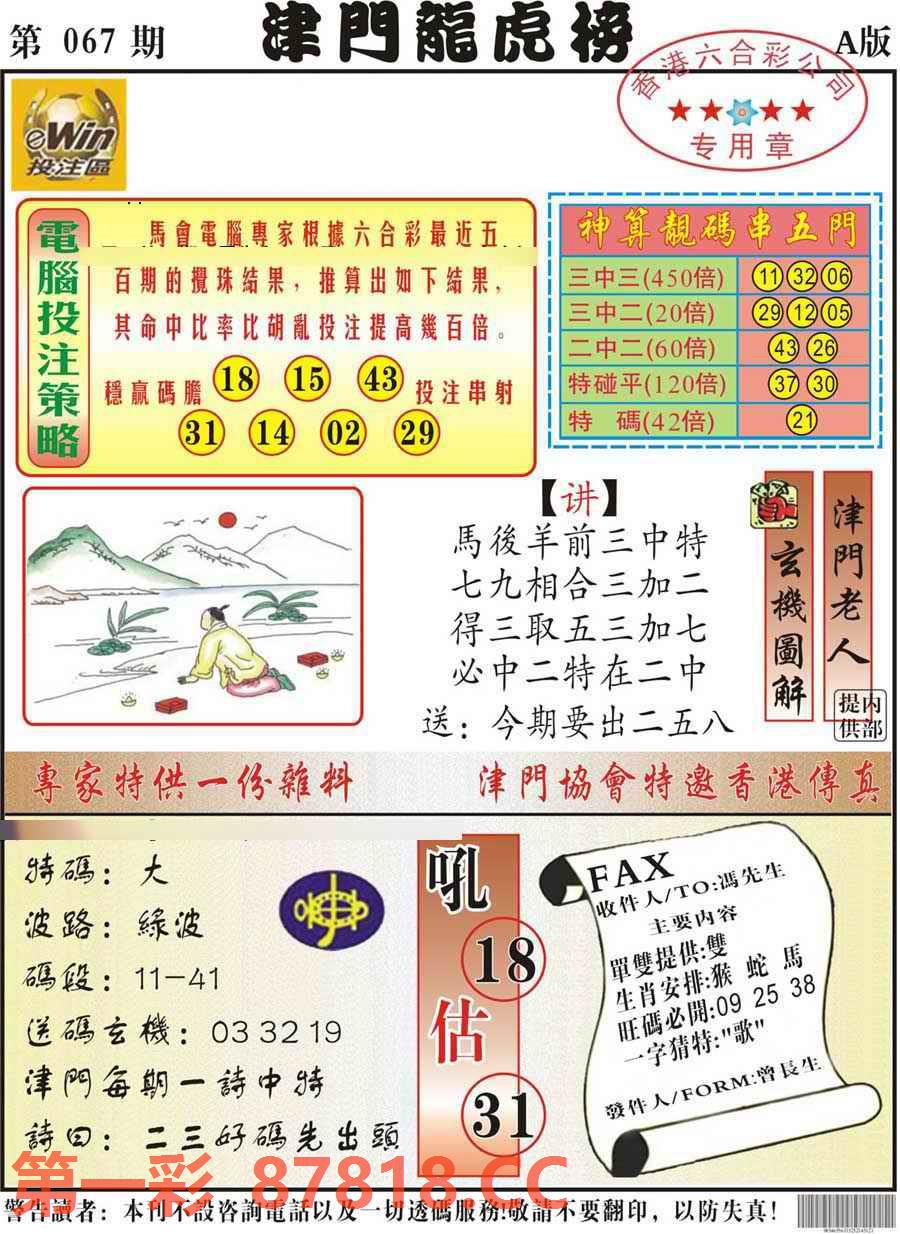 第 067 期
津門龍虎榜
A版
香港六合彩公司
专用章
eWin
投注區
電腦投注策略
馬會電腦專家根據六合彩最近五
百期的攪珠結果，推算出如下結果，
其命中比率比胡亂投注提高幾百倍。
穩贏碼膽 18 15 43 投注串射
31 14 02 29
神算靚碼串五門
三中三(450倍) 11 32 06
三中二(20倍) 29 12 05
二中二(60倍) 43 26
特碰平(120倍) 37 30
特 碼(42倍) 21
【讲】
馬後羊前三中特
七九相合三加二
得三取五三加七
必中二特在二中
送：今期要出二五八
玄機圖解
津門老人
内部提供
專家特供一份雜料
津門協會特邀香港傳真
特碼：大
波路：綠波
碼段：11-41
送碼玄機：03 32 19
津門每期一詩中特
詩曰：二三好碼先出頭
吼
18
估
31
FAX
收件人/TO:馮先生
主要内容
單雙提供:雙
生肖安排:猴 蛇 馬
旺碼必開:09 25 38
一字猜特:"歌"
發件人/FORM:曾長生
第一彩 87818.CC
警告讀者：本刊不設咨詢電話以及一切透碼服務!敬請不要翻印，以防失真！